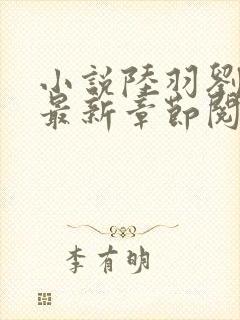 小説陸羽劉
最新章節閱
李有明